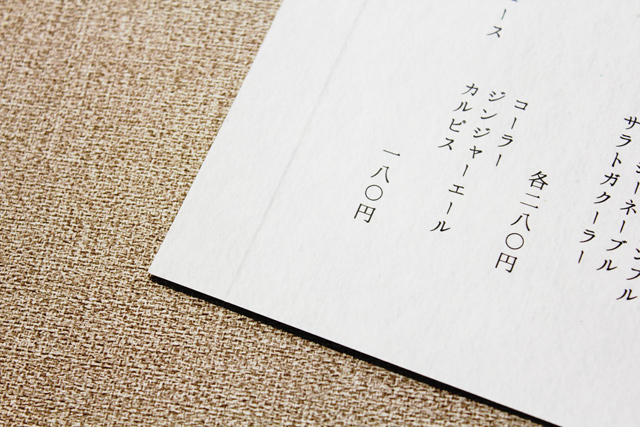 ーネーブル
サラトガクーラー
各二八〇円
ース
コーラー
ジンジャーエール
カルピス
一八〇円